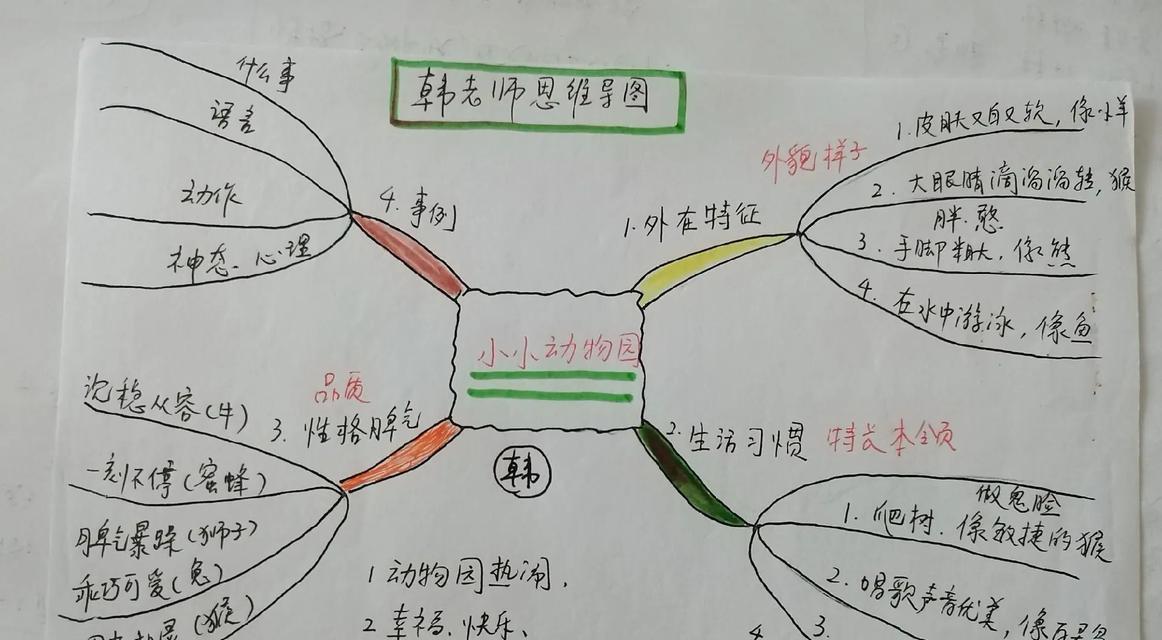 韩老师思维导图
小小动物园
韩
外貌样子
1.外在特征
1.皮肤又白又软，像小羊
2.大眼睛滴溜溜转，猴
胖.憨
3.手脚粗大，像熊
4.在水中游泳，像鱼
2.生活习惯
特长本领
做鬼脸
1.爬树.像敏捷的猴
2.唱歌声音优美，像百灵鸟
3.
4.
品质
3.性格脾气
沉稳从容(牛)
一刻不停(蜜蜂)
脾气暴躁(狮子)
乖巧可爱(兔)
(猴)
4.事例
什么事
语言
动作
神态、心理
1动物园热闹，
2幸福、快乐、